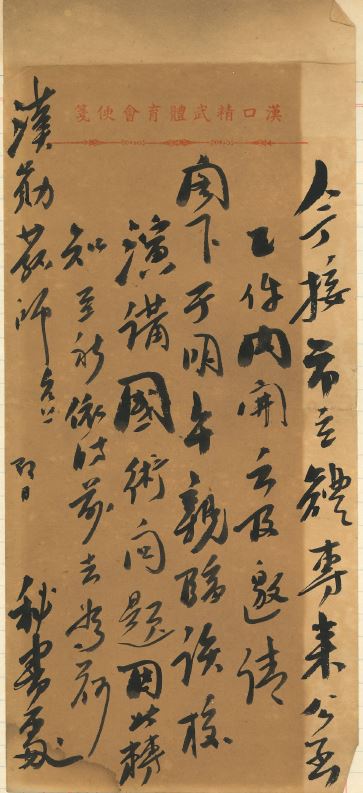 漢口精武體育會便箋
今接市立體專來公函
乙件內開云及邀請
閣下于明午親臨該校
演講國術問題因此轉
知至祈依時前去為荷
勛裳師
即日
秘書處